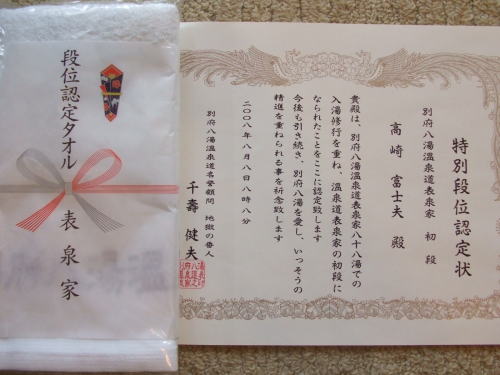 特別段位認定状
別府八湯温泉道表泉家 初段
高崎 富士夫 殿
貴殿は、別府八湯温泉道表泉家八十八湯での
入湯修行を重ね、温泉道表泉家の初段に
なられたことをここに認定致します
今後も引き続き、別府八湯を愛し、いっそうの
精進を重ねられる事を祈念致します
二〇〇八年八月八日八時八分
別府八湯温泉道名誉顧問 地獄の番人
千壽 健夫
段位認定タオル 表泉家